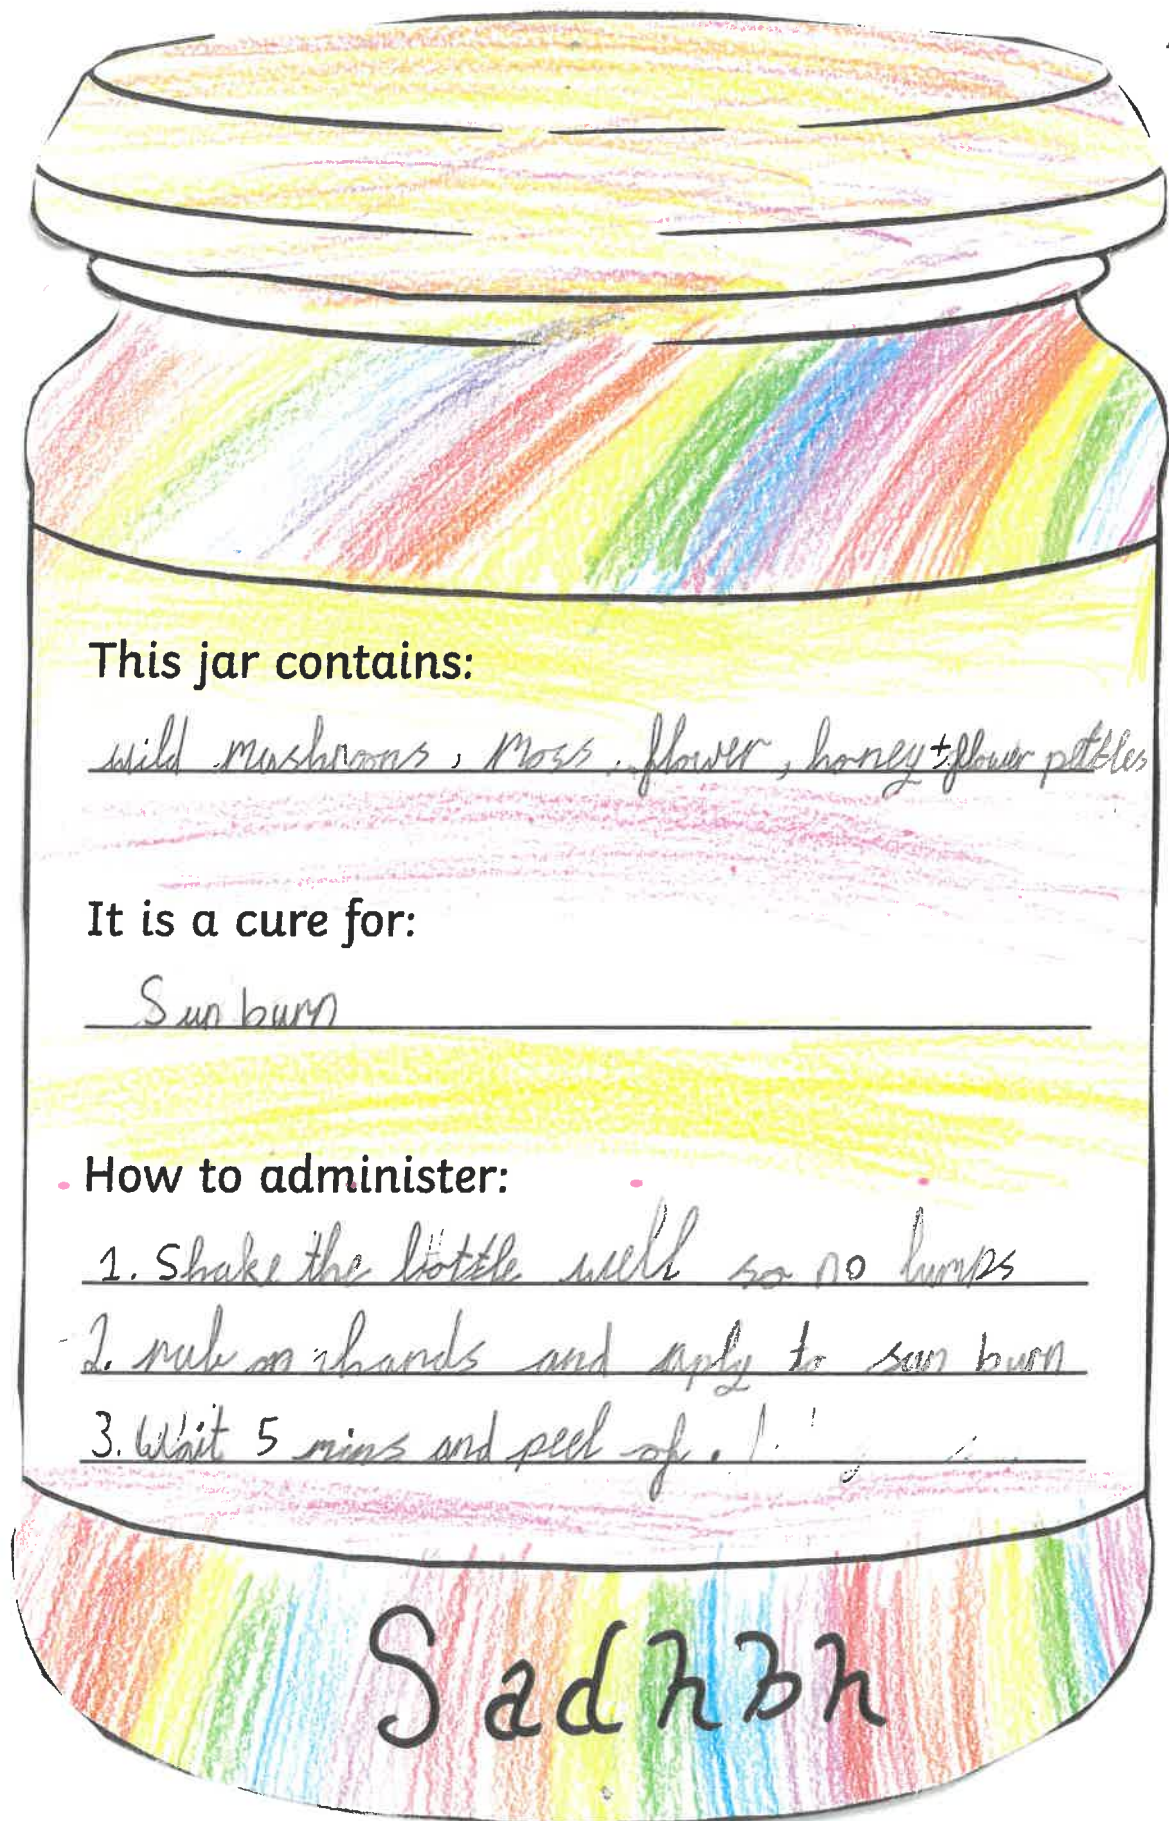 This jar contains:
wild mushrooms, Moss, flower, honey + flower pettles
It is a cure for:
Sun burn
How to administer:
1. Shake the bottle well so no lumps
2. rub on hands and aply to sun burn
3. Wait 5 mins and peel of.
Sadhbh